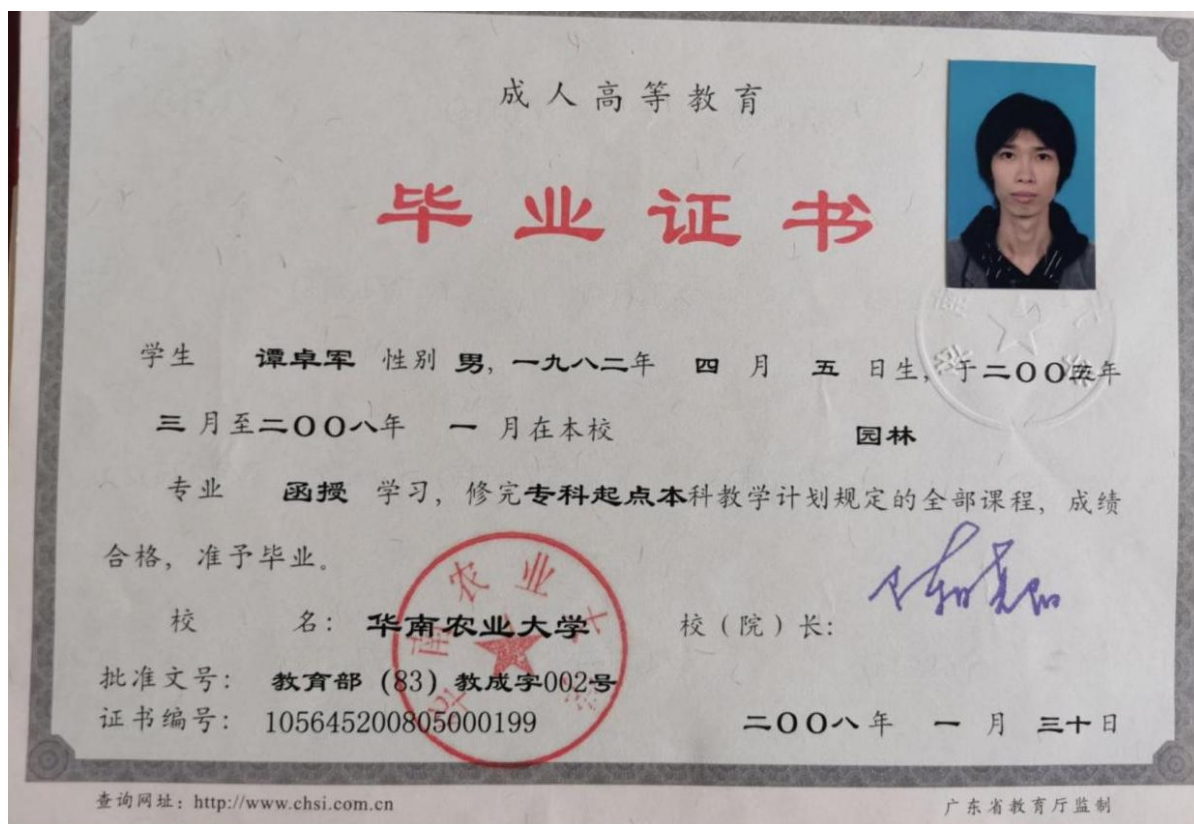 成人高等教育
毕业证书
学生 谭卓军 性别 男, 一九八二年 四 月 五 日生, 于二〇〇五年
三 月至二〇〇八年 一 月在本校 园林
专业 函授 学习, 修完专科起点本科教学计划规定的全部课程, 成绩
合格, 准予毕业。
校 名: 华南农业大学 校(院)长:
批准文号: 教育部 (83) 教成字002号
证书编号: 105645200805000199 二〇〇八年 一 月 三十日
华南农业大学
查询网址: http://www.chsi.com.cn 广东省教育厅监制